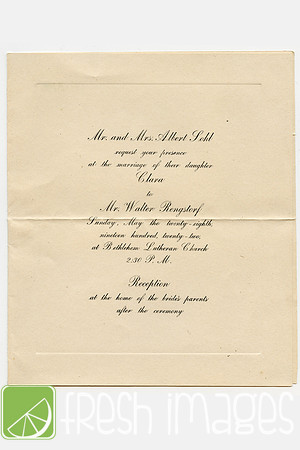 Mr. and Mrs. Albert Sohl
request your presence
at the marriage of their daughter
Clara
to
Mr. Walter Rengstorf
Sunday, May the twenty-eighth,
nineteen hundred, twenty-two,
at Bethlehem Lutheran Church
2:30 P. M.
Reception
at the home of the brides parents
after the ceremony
fresh images